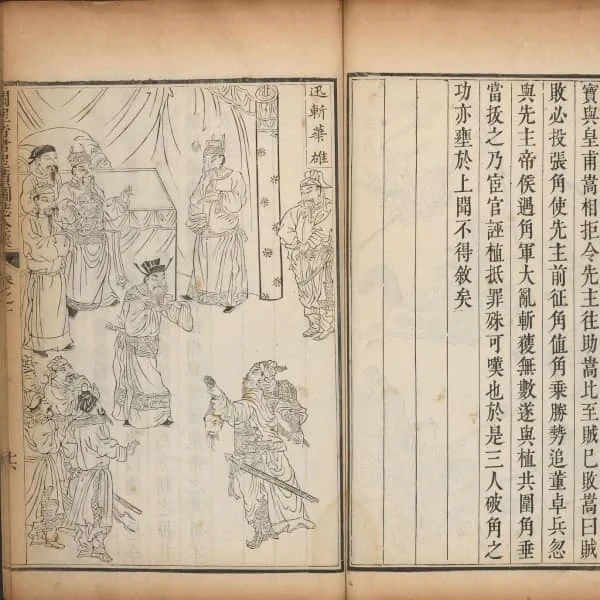 寶與皇甫嵩相拒令先主往助嵩比至賊已敗嵩曰賊
敗必投張角使先主前征角值角乘勝勢追董卓兵忽
與先主帝侯遇角軍大亂斬獲無數遂與植共圍角垂
當拔之乃宦官誣植抵罪殊可嘆也於是三人破角之
功亦壅於上聞不得敘矣
迅斬華雄
關聖帝君聖蹟圖誌全集
卷之一